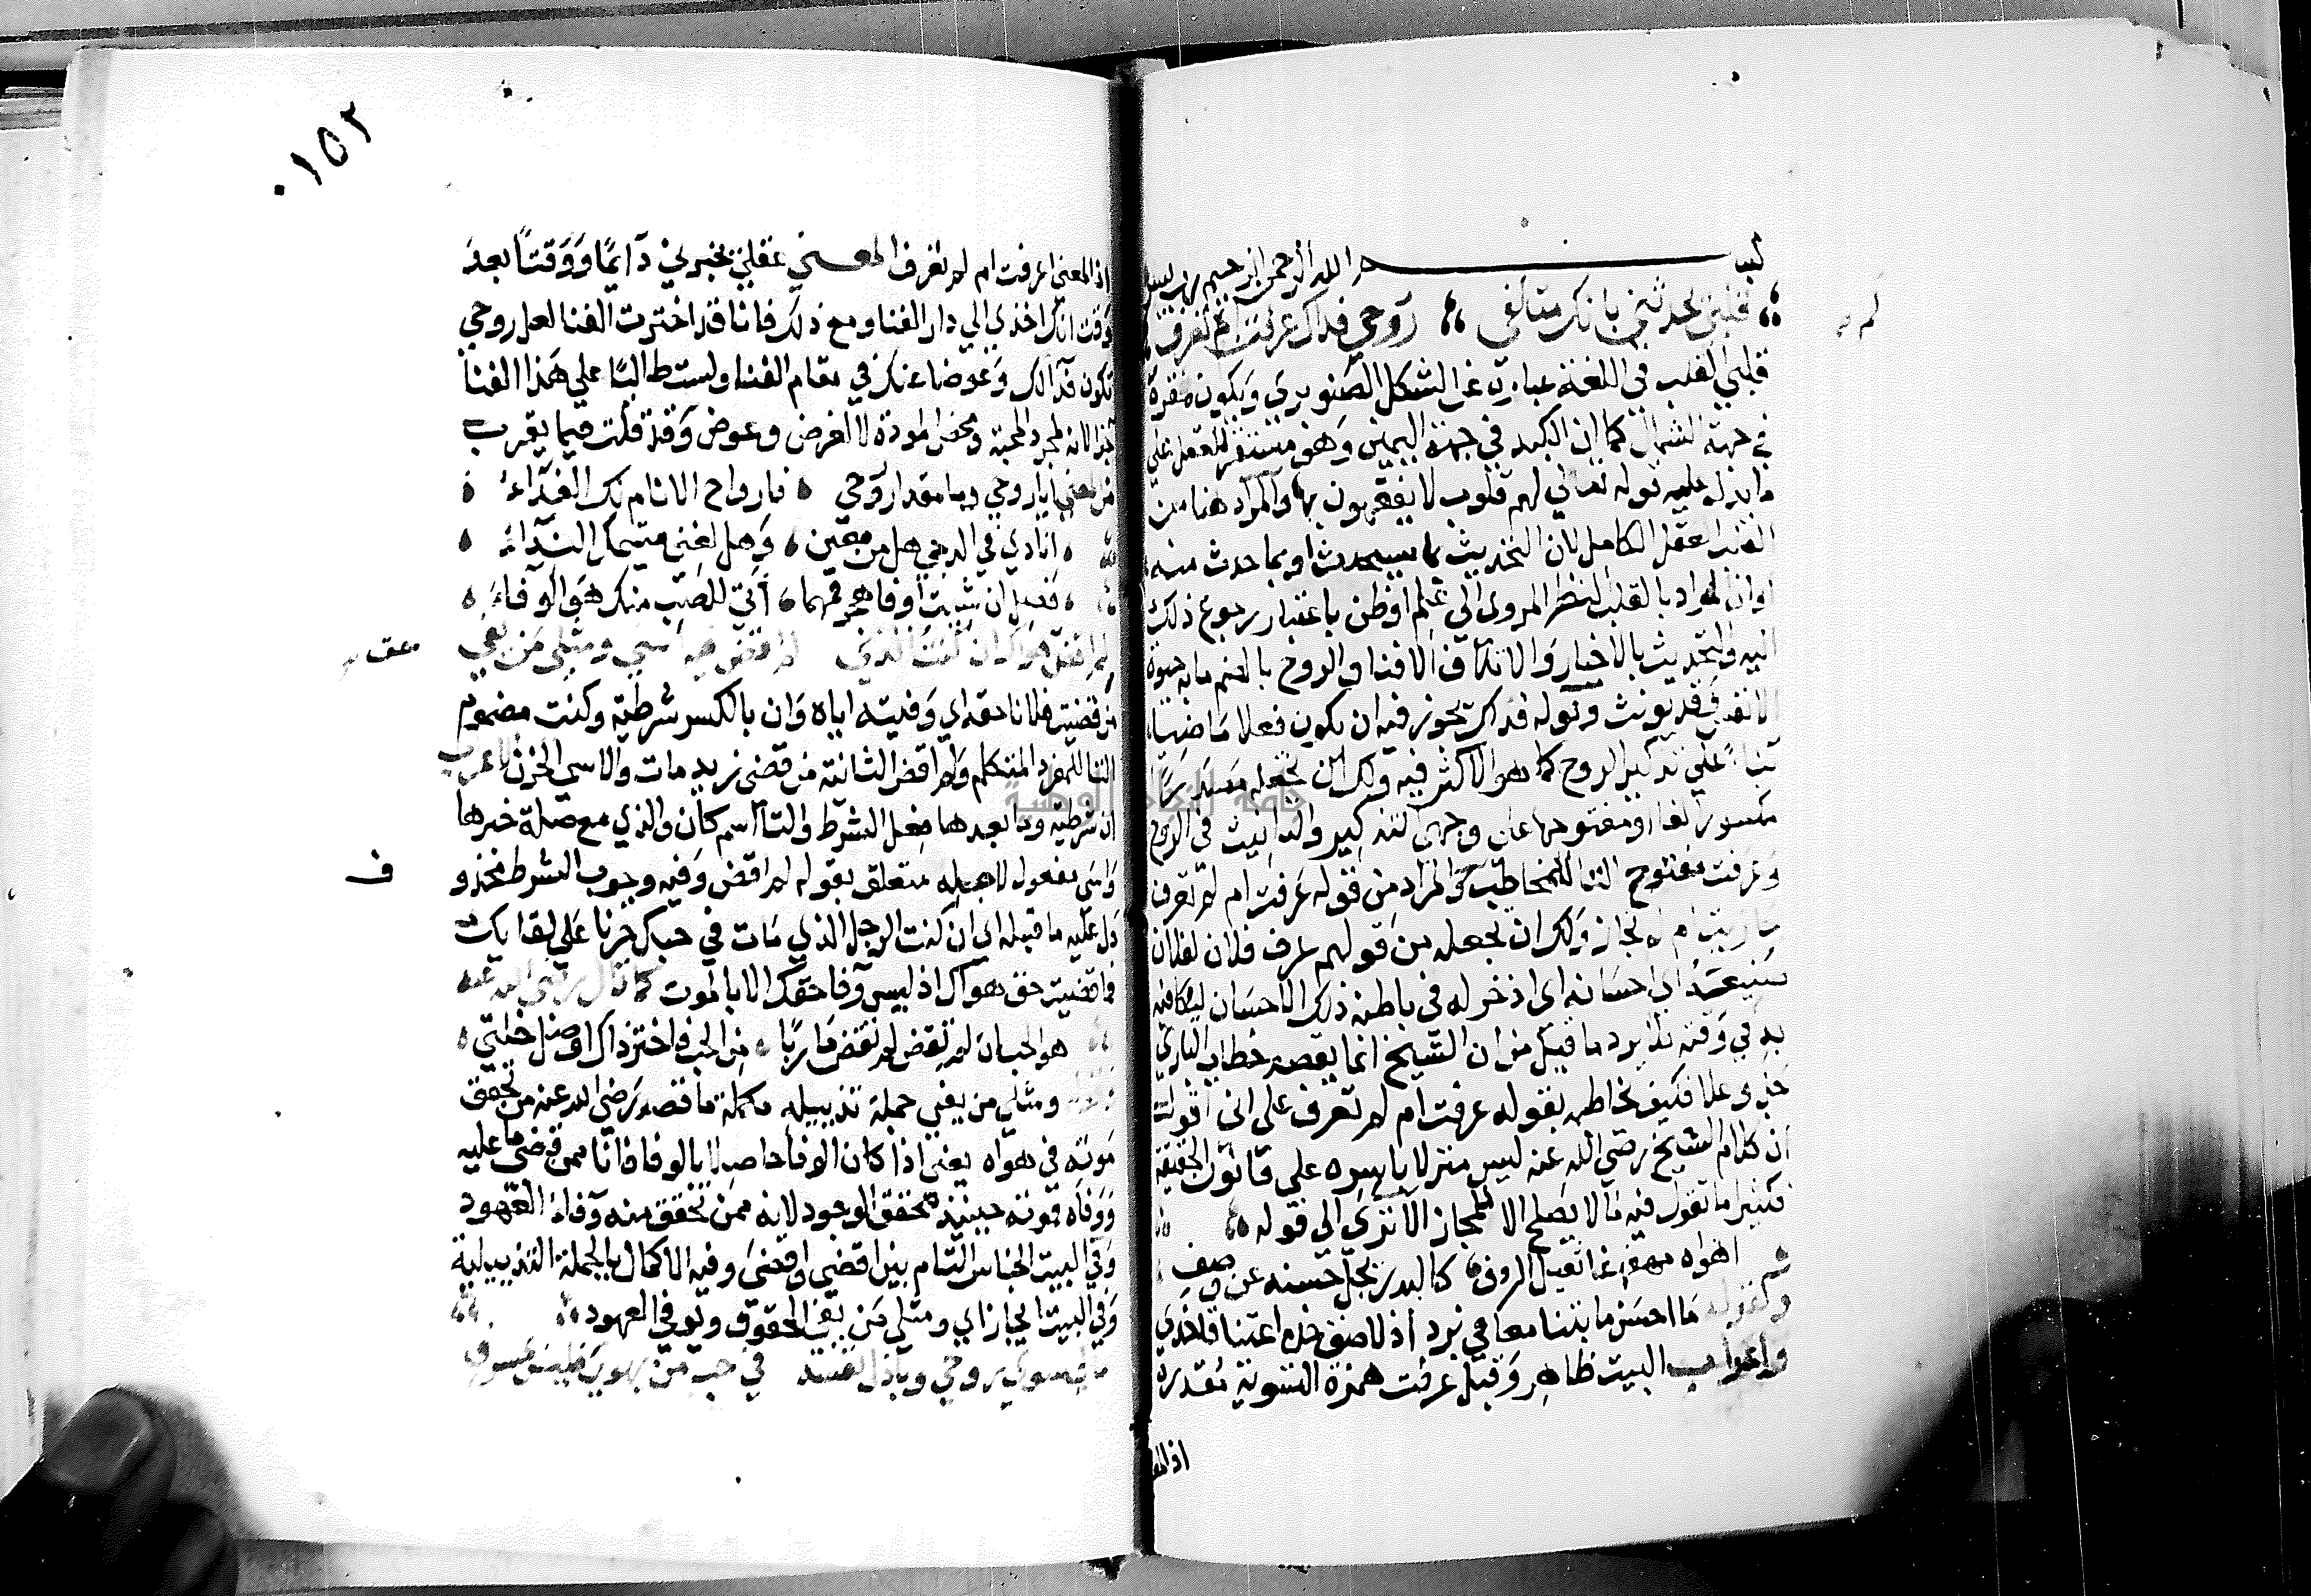 بسم الله الرحمن الرحيم رب يسر
قلبي يحدثني بانك متلفي روحي فداك عرفت ام لم تعرف
قلبي القلب في اللغة عبارة عن الشكل الصنوبري ويكون مقره
في جهة الشمال كما ان الكبد في جهة اليمين وهو مستقر للعقل على
ما يدل عليه قوله تعالي لهم قلوب لا يفقهون بها والمراد هنا من
القلب العقل الكامل لان التحديث بما سيحدث او بما حدث منه
او ان المراد بالقلب النظر المروي الي علم او ظن باعتبار رجوع ذلك
اليه والتحديث بالاخبار والاتلاف الافنا والروح بالضم ما به حيوة
الانفس وقد يونث وقوله فداك يجوز فيه ان يكون فعلا ماضيا
بناء علي تذكير الروح كما هو الاكثر فيه ولك ان تجعله مصدرا
مكسور الفا او مفتوحها على وجهي التذكير والتانيث في الروح
وعرفت مفتوح التا للمخاطب والمراد من قوله عرفت ام لم تعرف
جازيت ام لم تجاز ولك ان تجعله من قولهم عرف فلان لفلان
صنيعه اي احسانه اي اذخر له في باطنه ذلك الاحسان ليكافيه
به في وقته فلا يرد ما قيل من ان الشيخ انما يقصد خطاب الباري
جل وعلا فكيف يخاطبه بقوله عرفت ام لم تعرف على اني اقول
ان كلام الشيخ رضي الله عنه ليس منزلا باسره علي قانون الحقيقة
فكثيرا ما تقول فيه ما لا يصلح الا للمجاز الا تري الي قوله
اهواه مهفهفا ثقيل الردف كالبدر يجل حسنه عن وصف
ولقوله ما احسن ما بتنا معا في برد اذ لاصق خده اعتناقا خدي
واعراب البيت ظاهر وقبل عرفت همزة التسوية مقدرة
اذ المعني
١٥٢
اذ المعني اعرفت ام لم تعرف المعني عقلي يخبرني دآيما ووقتا بعد
وقت انك اخذي الي دار الفنا ومع ذلك فانا قد اخترت الفنا لعل روحي
تكون فدآ لك وعوضا عنك في مقام الفنا ولست طالبا علي هذا الفنا
جزا لانه لمجرد المحبة ومحض المودة لا لغرض وعوض وقد قلت فيما يقرب
من المعني ايا روحي وما مقدار روحي فارواح الانام لك الفدآء
انادي في الدجي هل من معين وهل يغني متيمك الندآء
فعدل ان شيت اوفاهجر فمهما أتي للصب منك هو الوفآء
لم اقض حق هواك ان كنت الذي لم اقض فيه اسي ومثلي من يفي
من قضيت فلانا حقه اي وفيته اياه وان بالكسر شرطية وكنت مضموم
التا للمفرد المتكلم ولم اقض الثانية من قضي زيد مات والاسي الحزن الاعراب
ان شرطية وما بعدها فعل الشرط والتآ اسم كان والذي مع صلة خبرها
واسي مفعول لاجله متعلق بقوله لم اقض وفيه وجواب الشرط محذوف
دل عليه ما قبله اي ان كنت الرجل الذي مات في حبك حزنا علي لقايك
فما قضيت حق هواك اذ ليس وفا حقك الا بالموت كما قال رضي الله عنه
هو الحب ان لم تقض لم تقض ماربا من الحب فاختر ذاك او خل خلتي
ومثلي من يفي جملة تذييليه مكملة ما قصد رضي الله عنه من تحقق
موته في هواه يعني اذا كان الوفا حاصلا بالوفا فانا ممن قضي ما عليه
ووفاه فموته حينئذ محقق الوجود لانه ممن تحقق منه وفاء العهود
وفي البيت الجناس التام بين اقضي واقضي وفيه الاكمال بالجملة التذييلية
وفي البيت ايجاز اي ومثلي من يفي الحقوق ويوفي العهود
ما لي سوي روحي وباذل نفسه في حب من يهواه ليس بمسرف